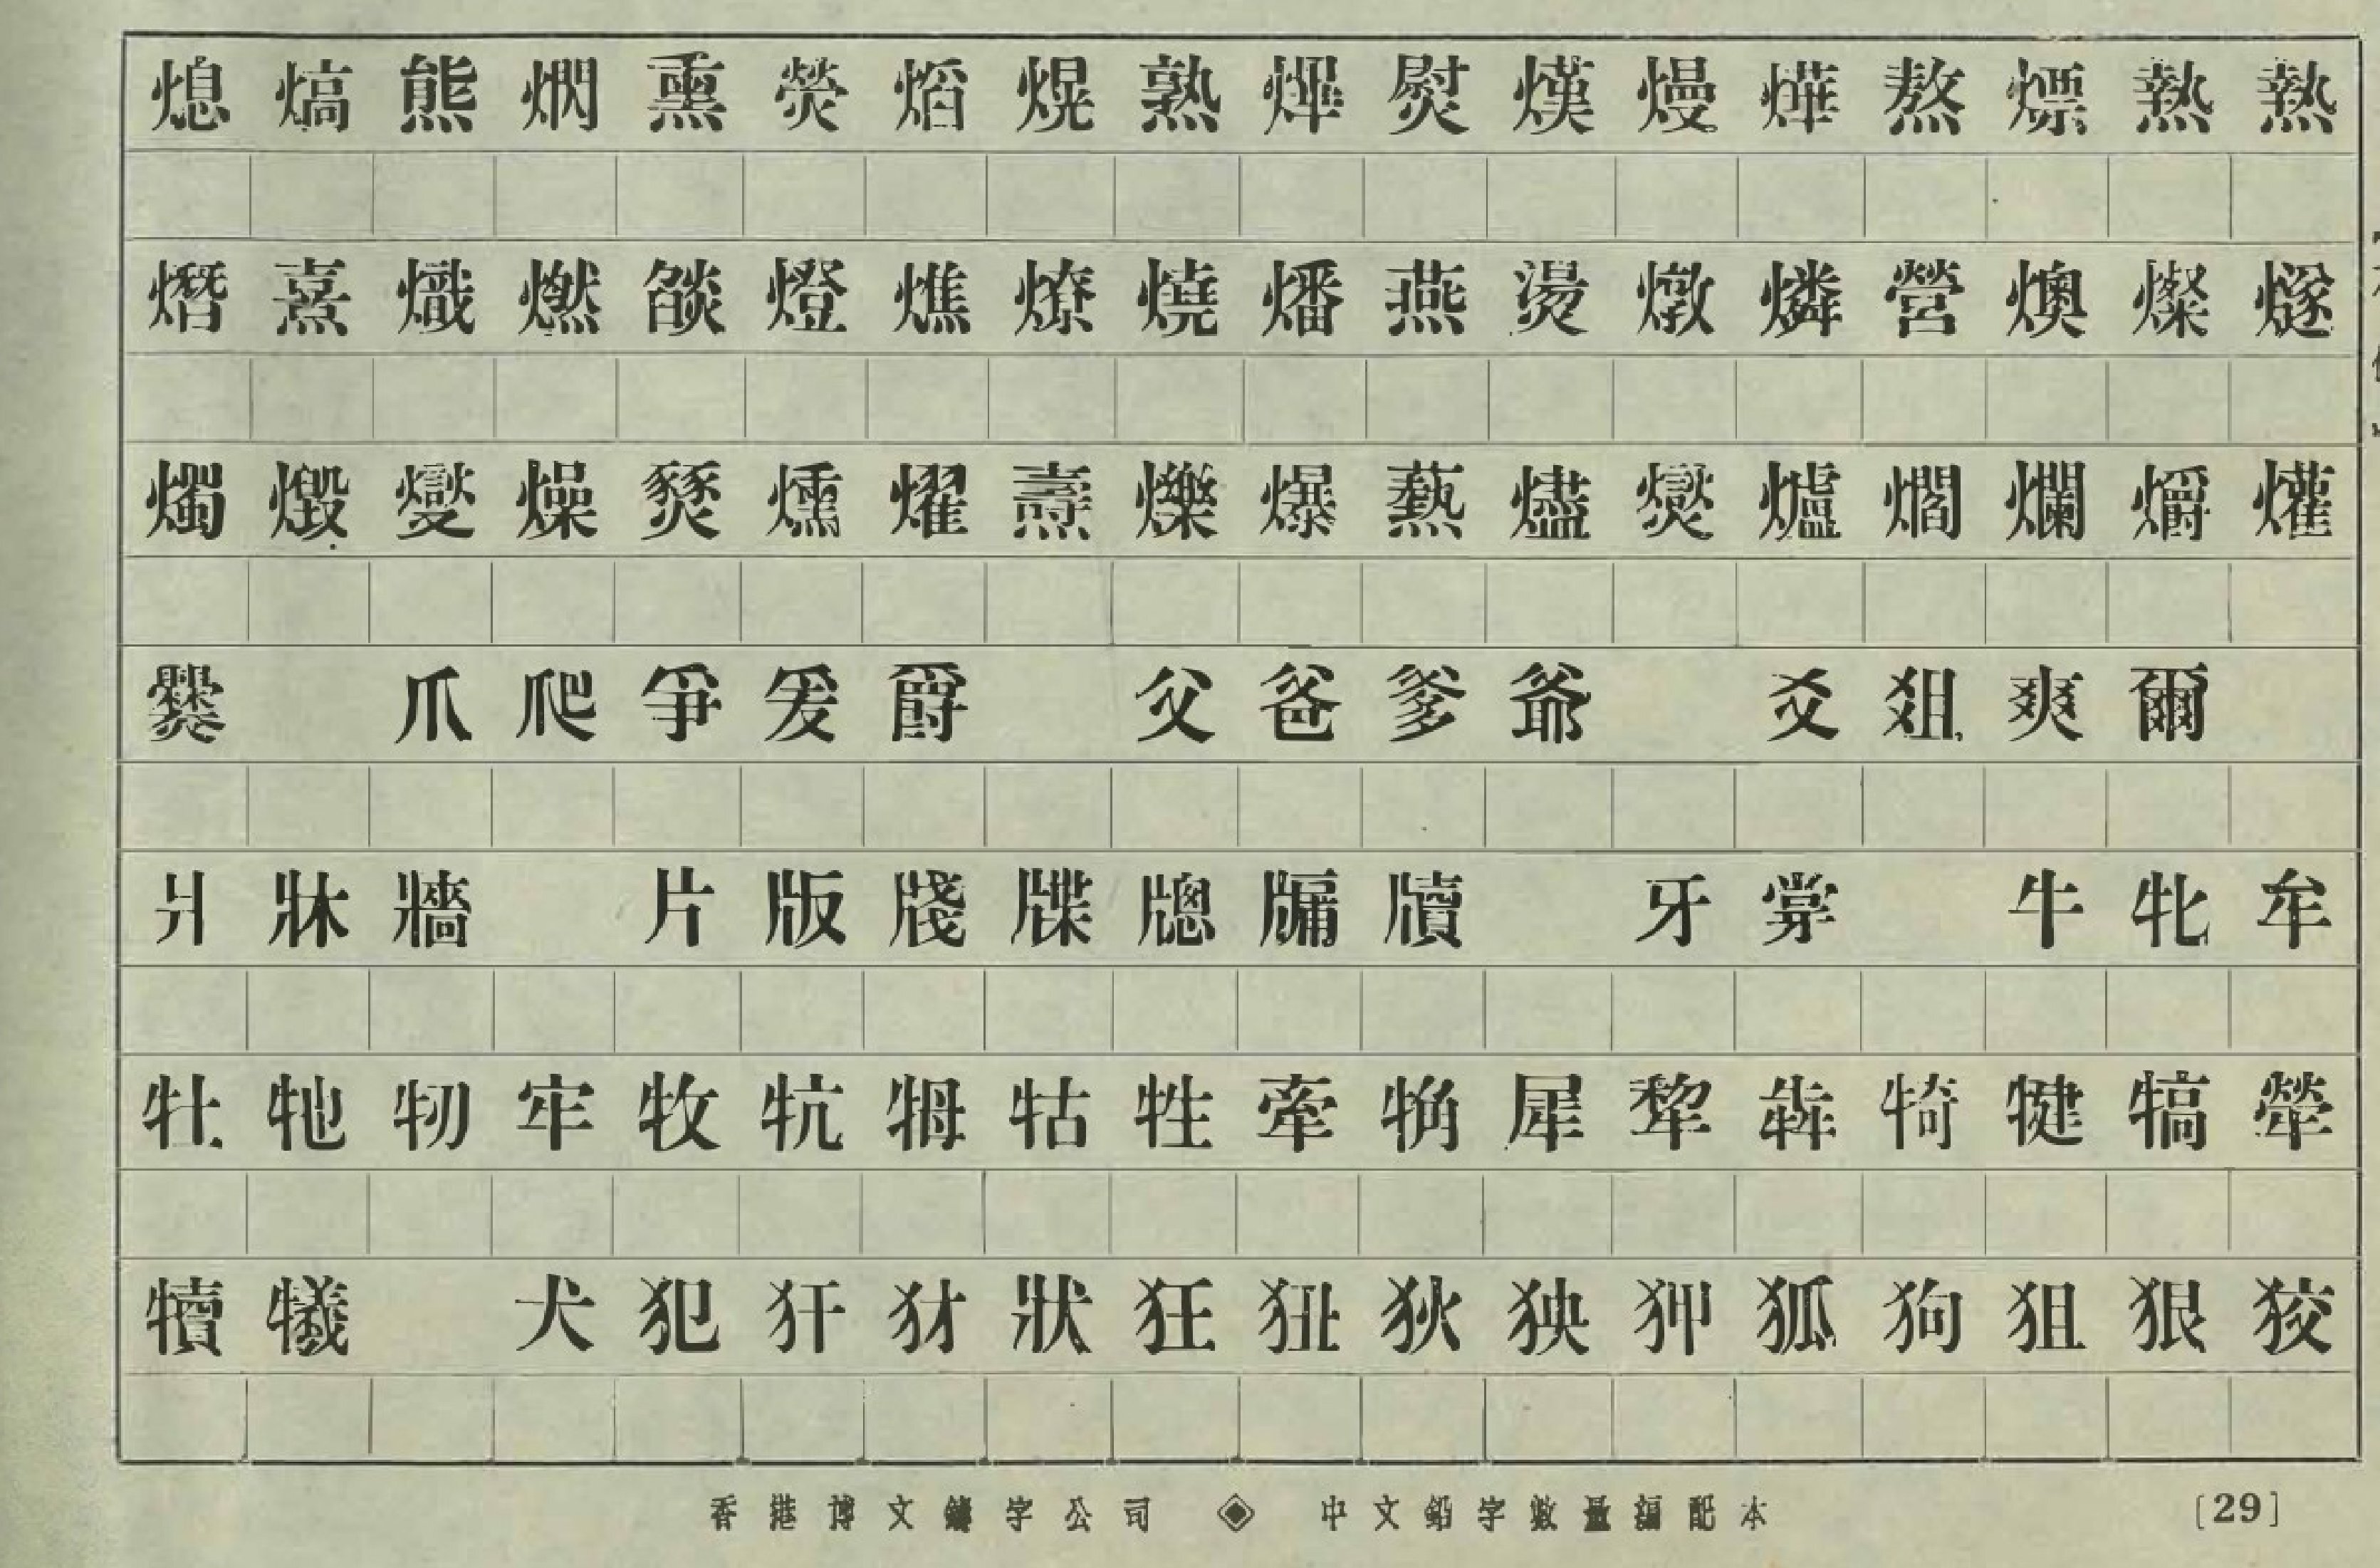 熄 熇 熊 燜 熏 熒 熖 熀 熟 熚 熨 熯 熳 燁 熬 熛 熱 熱
熸 熹 熾 燃 燄 燈 燋 燎 燒 燔 燕 燙 燉 燐 營 燠 燦 燧
燭 燬 燮 燥 燹 燻 燿 燾 爍 爆 爇 燼 爕 爐 爓 爛 爝 爟
爨 爪 爬 爭 爰 爵 父 爸 爹 爺 爻 爼 爽 爾
爿 牀 牆 片 版 牋 牒 牕 牖 牘 牙 牚 牛 牝 牟
牡 牠 牣 牢 牧 牨 牳 牯 牲 牽 犄 犀 犂 犇 犄 犍 犒 犖
犢 犧 犬 犯 犴 犲 狀 狂 狃 狄 狆 狐 狗 狙 狠 狡
香港博文鑄字公司 ◈ 中文鉛字數量編配本 [29]